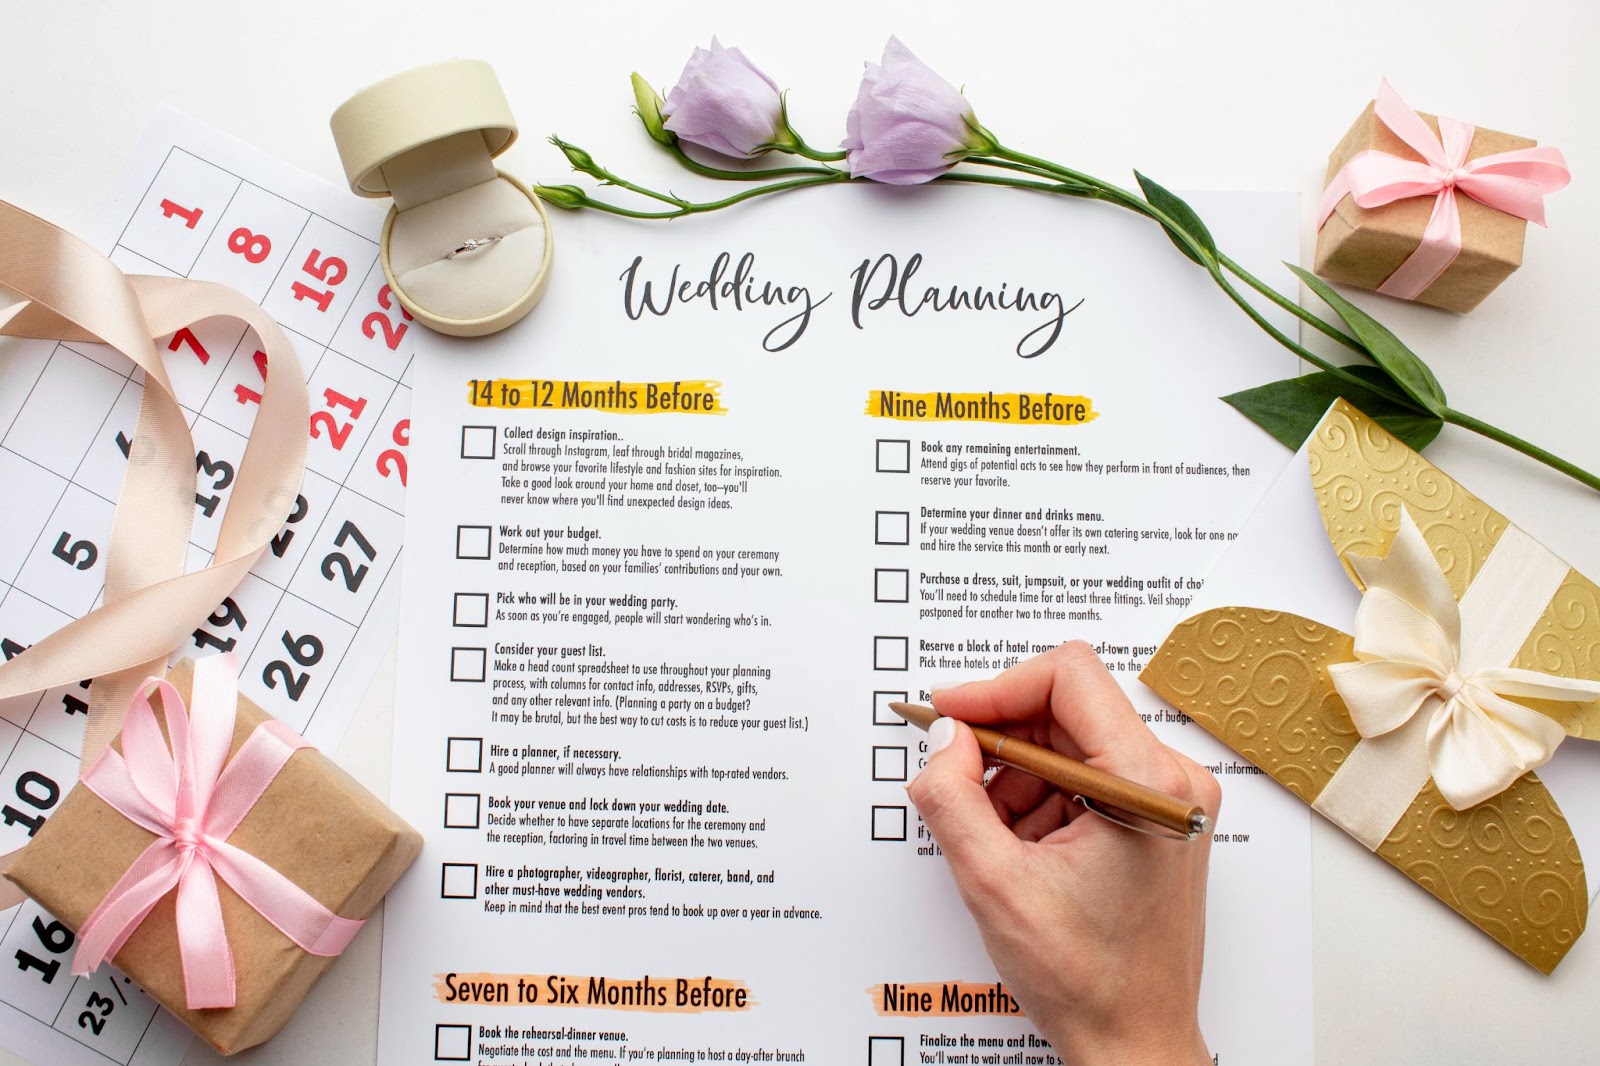 Wedding Planning
14 to 12 Months Before
Collect design inspiration..
Scroll through Instagram, leaf through bridal magazines,
and browse your favorite lifestyle and fashion sites for inspiration.
Take a good look around your home and closet, too—you'll
never know where you'll find unexpected design ideas.
Work out your budget.
Determine how much money you have to spend on your ceremony
and reception, based on your families' contributions and your own.
Pick who will be in your wedding party.
As soon as you're engaged, people will start wondering who's in.
Consider your guest list.
Make a head count spreadsheet to use throughout your planning
process, with columns for contact info, addresses, RSVPs, gifts,
and any other relevant info. (Planning a party on a budget?
It may be brutal, but the best way to cut costs is to reduce your guest list.)
Hire a planner, if necessary.
A good planner will always have relationships with top-rated vendors.
Book your venue and lock down your wedding date.
Decide whether to have separate locations for the ceremony and
the reception, factoring in travel time between the two venues.
Hire a photographer, videographer, florist, caterer, band, and
other must-have wedding vendors.
Keep in mind that the best event pros tend to book up over a year in advance.
Seven to Six Months Before
Book the rehearsal-dinner venue.
Negotiate the cost and the menu. If you're planning to host a day-after brunch
Nine Months Before
Book any remaining entertainment.
Attend gigs of potential acts to see how they perform in front of audiences, then
reserve your favorite.
Determine your dinner and drinks menu.
If your wedding venue doesn't offer its own catering service, look for one
and hire the service this month or early next.
Purchase a dress, suit, jumpsuit, or your wedding outfit of
You'll need to schedule time for at least three fittings. Veil
postponed for another two to three months.
Reserve a block of hotel
guest
Pick three hotels at
to the
of
travel
If
one now
and
Nine Months
Finalize the menu and
You'll want to wait until now to
1 8 15
7 14 21 28
6 13 20 27
5 19 26
10
16
23/